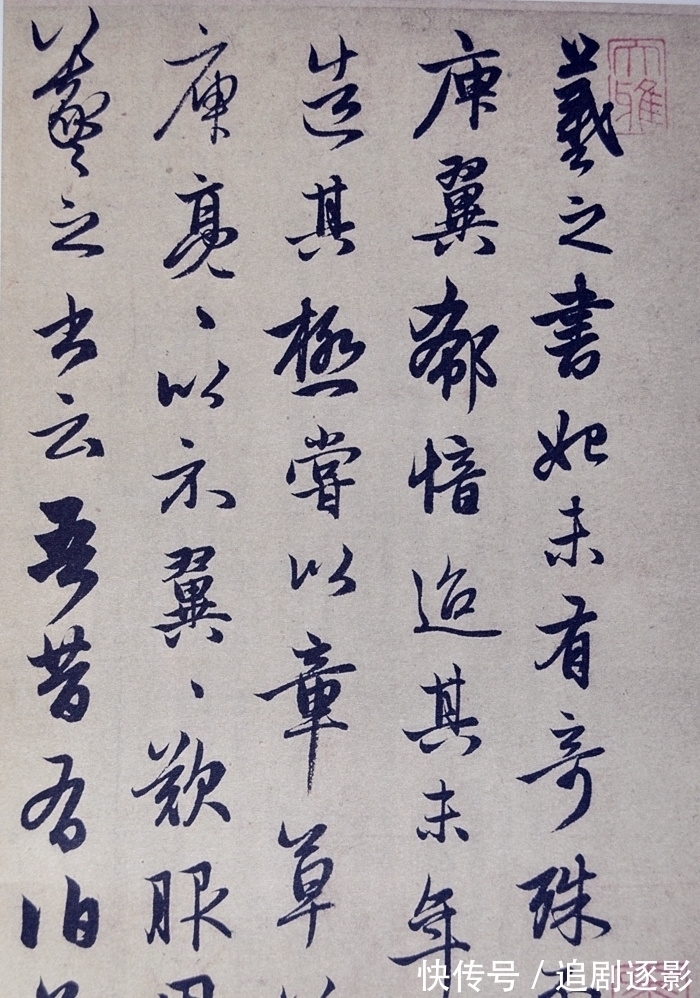 羲之書始未有奇殊
庾翼郗愔迨其末年
造其極嘗以章草
庾亮、以示翼、歎服
羲之書云吾昔有伯
大雅
快传号／追剧逐影